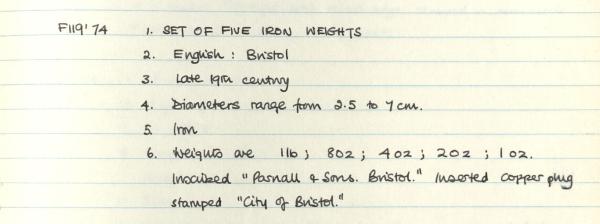 F119'74 1. SET OF FIVE IRON WEIGHTS
2. English : Bristol
3. Late 19th century
4. Diameters range from 2.5 to 7cm.
5 Iron
6. Weights are 1lb ; 8oz ; 4oz ; 2oz ; 1oz.
Inscribed "Parnall & Sons. Bristol." Inserted copper plug
stamped "City of Bristol."